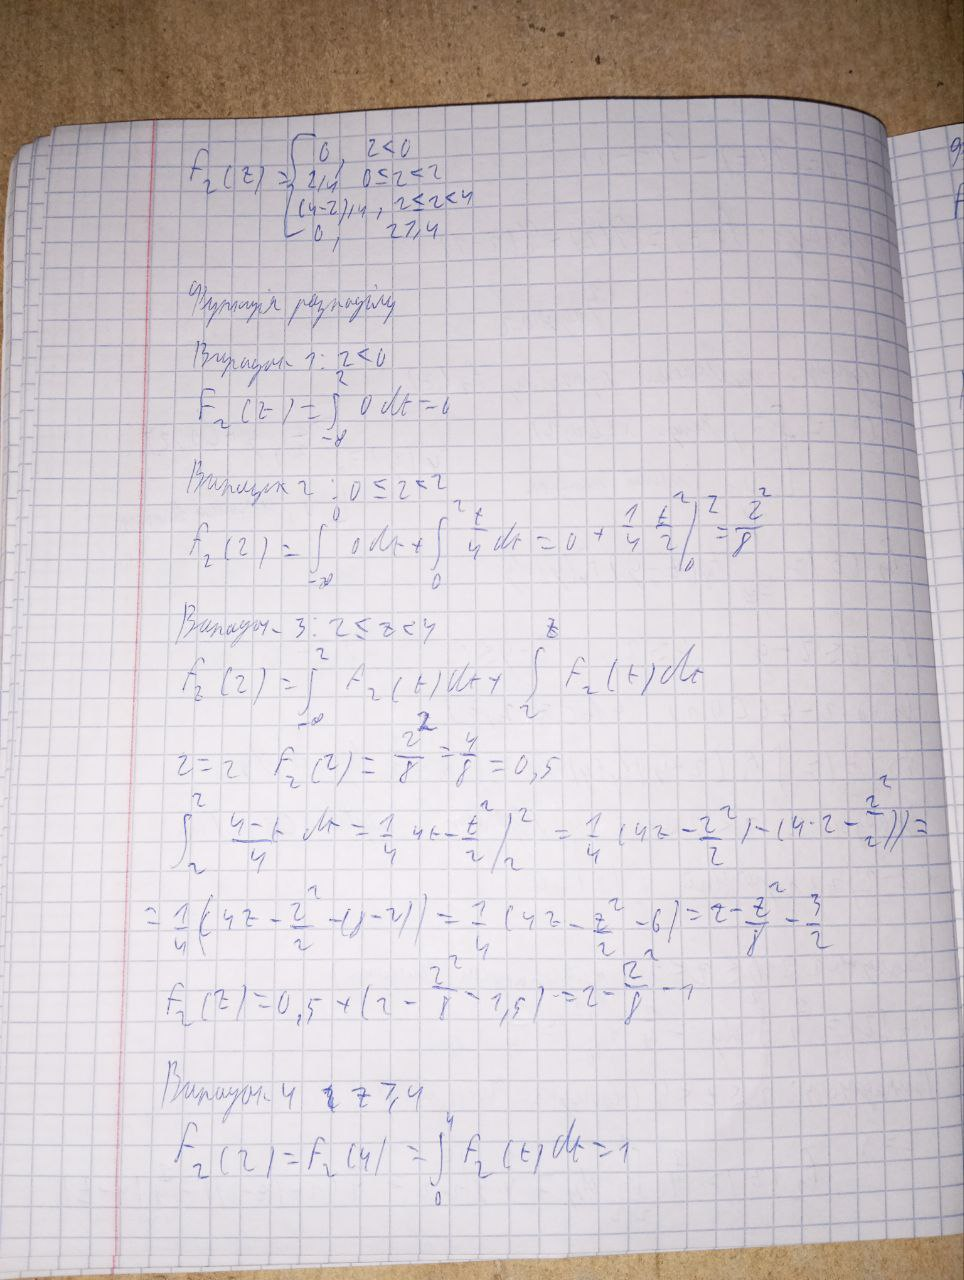 f₂(z) = { 0, 2<0
2/4, 0≤2<2
(4-2)/4, 2≤2<4
0, 2≥4
Функція розподілу
Випадок 1: 2<0
F₂(z) = ∫_{-∞}^{2} 0 dt = 0
Випадок 2: 0≤2<2
F₂(2) = ∫_{-∞}^{0} 0 dt + ∫_{0}^{2} t/4 dt = 0 + 1/4 t²/2 |_{0}^{2} = 2²/8
Випадок 3: 2≤z<4
F₂(2) = ∫_{-∞}^{2} f₂(t) dt + ∫_{2}^{z} f₂(t) dt
2=2 F₂(2) = 2²/8 = 4/8 = 0,5
∫_{2}^{2} (4-t)/4 dt = 1/4 4t - t²/2 |_{2}^{2} = 1/4 (4z - 2²/2) - (4·2 - 2²/2)) =
= 1/4 (4z - 2²/2 - (8-2)) = 1/4 (4z - z²/2 - 6) = z - z²/8 - 3/2
F₂(z) = 0,5 + (2 - 2²/8 - 1,5) = 2 - 2²/8 - 1
Випадок 4 z≥4
F₂(2) = F₂(4) = ∫_{0}^{4} f₂(t) dt = 1